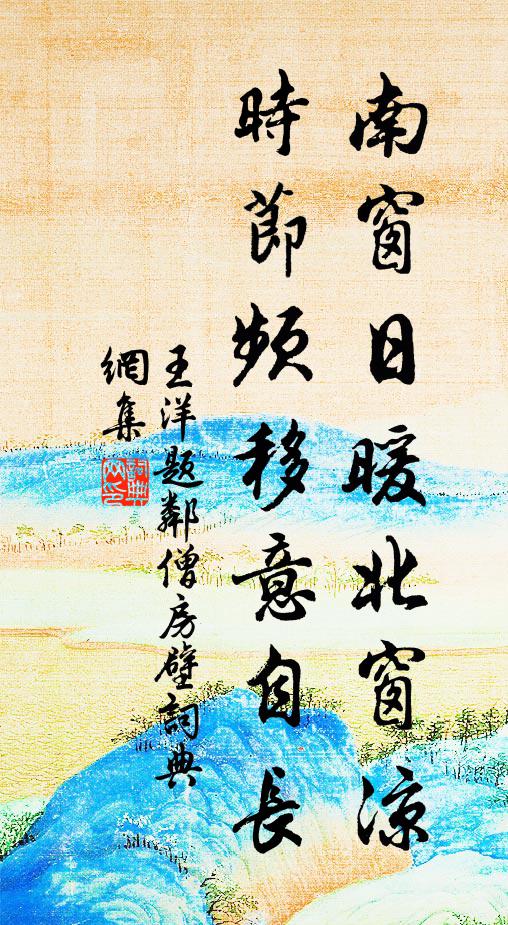 南窗日暖北窗涼
時節頻移意自長
王洋題鄰僧房壁詞典
網集
詞典
网印